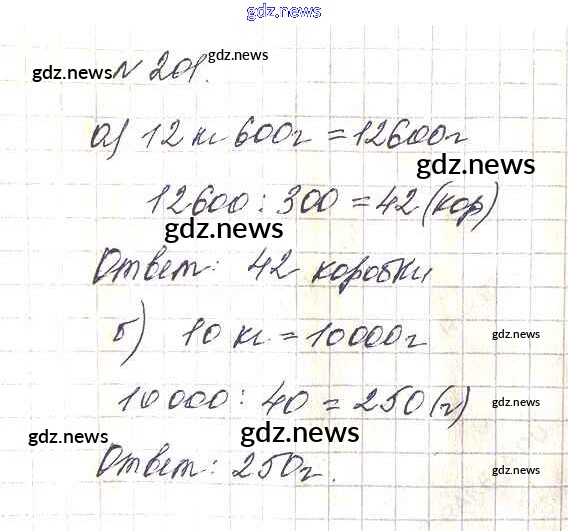 gdz.news
gdz.news № 201. gdz.news
а) 12 кг 600г = 12600г
gdz.news
12600 : 300 = 42 (кор)
gdz.news
Ответ: 42 коробки
б) 10 кг = 10000г
gdz.news
10 000 : 40 = 250 (г)
gdz.news
gdz.news gdz.news
Ответ: 250г.
gdz.news